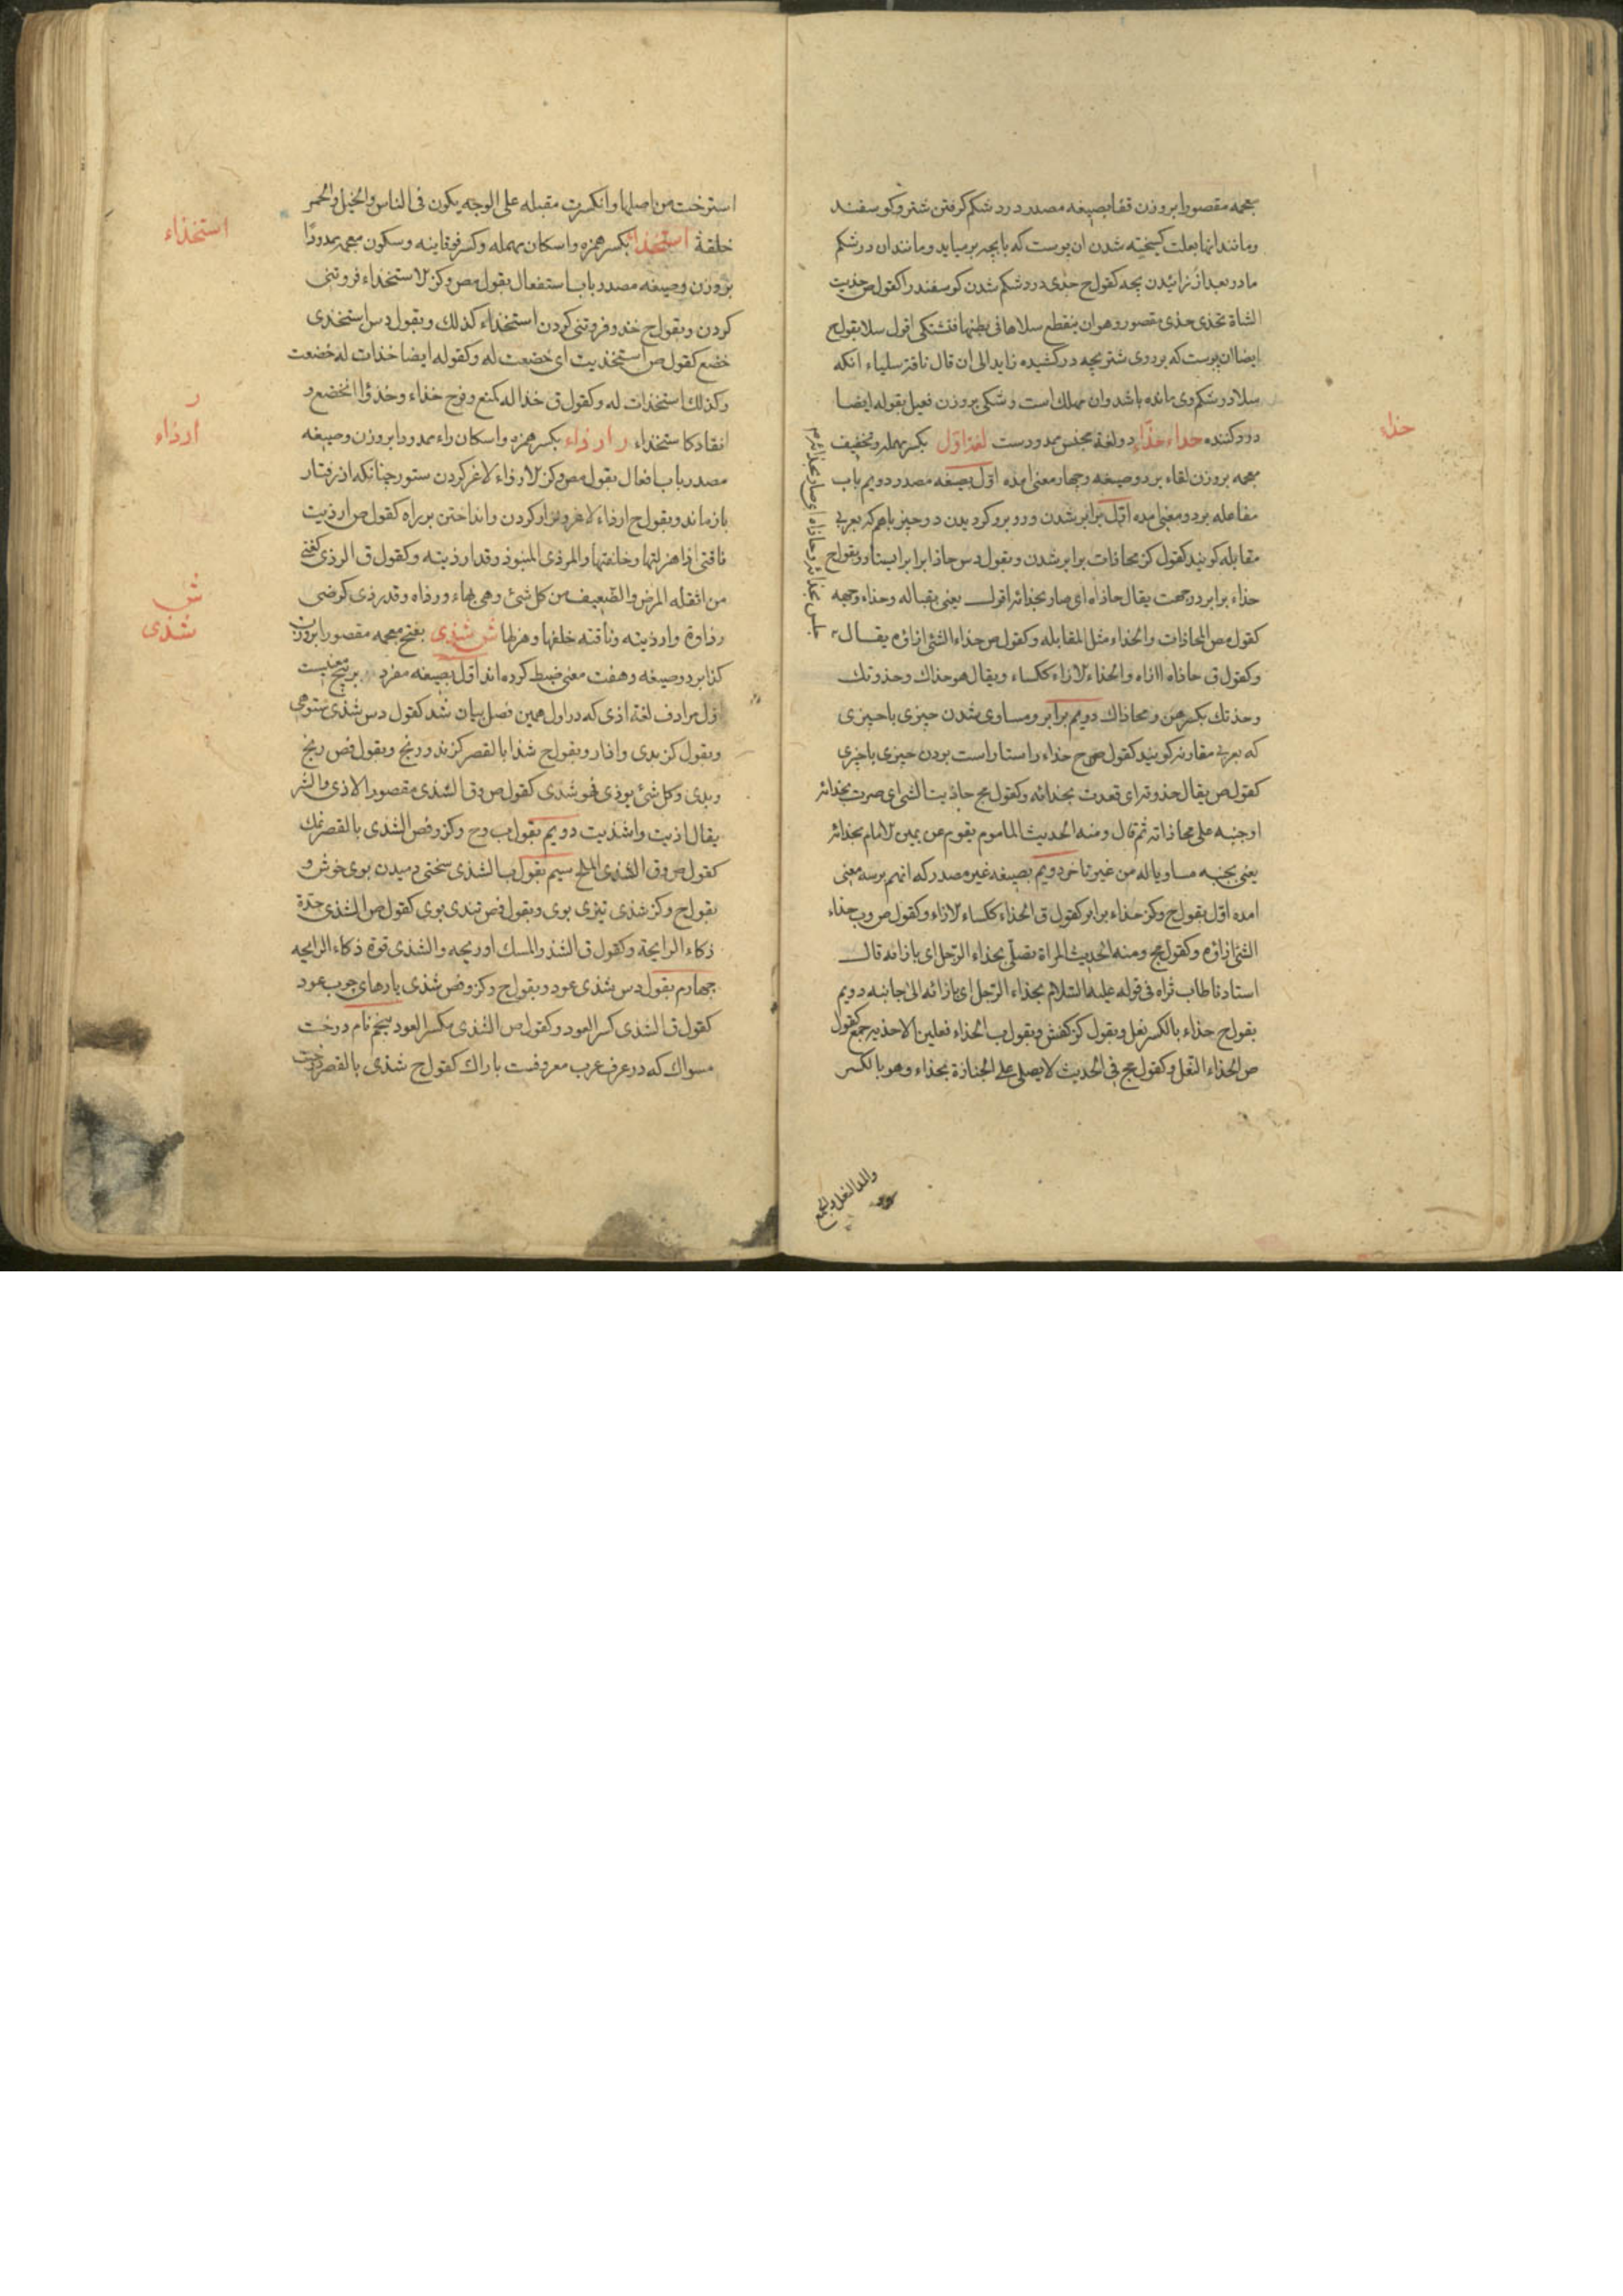 بمعجمه مقصورا بروزن قفا بصیغه مصدر درد شکم کرفتن شتر و کوسفند
و مانند انها بعلت کسیخته شدن ان پوست که با بچه بر میاید و ماندن ان در شکم
مادر بعد از زائیدن بچه کقول ح حذی درد شکم شدن کوسفند را کقول ص حذیت
الشاة تحذی حذی مقصور و هو ان ینقطع سلاها فی بطنها فتشتکی اقول سلا بقول ح
ایضا ان پوست که بر روی شتر بچه در کشیده زاید الی ان قال ناقة سلیاء انکه
سلا در شکم وی مانده باشد و ان مهلک است و شکی بروزن فعیل بقوله ایضا
درد کننده حذاء حذاء دو لغة بجنس ممدودست لغة اول بکسر مهمله و تخفیف
معجمه بروزن لقاء بر دو صیغه و چهار معنی امده اول بصیغه مصدر دویم باب
مفاعله بر دو معنی امده اول برابر شدن و روبرو کردیدن دو چیز باهم که بعربی
مقابله کویند کقول کز محاذات برابر شدن و بقول دس حاذا برابر ایستاد و بقول ح
حذاء برابر در جهت یقال حاذاه ای صار بحذائه اقول یعنی بقباله و حذاء وجهه
کقول مص المحاذات و الحذاء مثل المقابله و کقول ص حذاء الشئ ازاؤه یقال
و کقول ق حاذاه ازاه و الحذاء الازاء ککساء و یقال هو حذاک و حذوتک
و حذتک بکسرهن و محاذاک دویم برابر و مساوی شدن چیزی با چیزی
که بعربی مقارنه کویند کقول ح حذاء راستا راست بودن چیزی با چیزی
کقول ص یقال حذوته ای قعدت بحذائه و کقول مج حاذیت الشئ ای صرت بحذائه
او جنبه علی محاذاته ثم قال و منه الحدیث الماموم یقوم عن یمین الامام بحذائه
یعنی بجنبه مساویا له من غیر تاخر دویم بصیغه غیر مصدر که انهم بر سه معنی
امده اول بقول ح و کز حذاء برابر کقول ق الحذاء ککساء الازاء و کقول ص و ب حذاء
الشئ ازاؤه و کقول مج و منه الحدیث المراة تصلی بحذاء الرجل ای بازائه قال
استادنا طاب ثراه فی قوله علیه السلام بحذاء الرجل ای بازائه الی جانبه دویم
بقول ح حذاء بالکسر نعل و بقول کز کفش و بقول ب الحذاء نعلین الاحذیه جمع کقول
ص الحذاء النعل و کقول مج فی الحدیث لا یصلی علی الجنازة بحذاء و هو بالکسر
حذاء
و المد النعل و الجمع
استرخت من اصلها و انکسرت مقبله علی الوجه یکون فی الناس و الخیل و الحمر
خلقة استخذاء بکسر همزه و اسکان مهمله و کسر فوقانیه و سکون معجمه ممدودا
بروزن و صیغه مصدر باب استفعال بقول مص و کز الاستخذاء فروتنی
کردن و بقول ح خذو فروتنی کردن استخذاء کذلک و بقول دس استخذی
خضع کقول ص استخذیت ای خضعت له و کقوله ایضا خذات له خضعت
و کذلک استخذات له و کقول ق خذا له کمنع و فرح خذاء و خذؤا انخضع و
انقاد کاستخذاء ر ارذاء بکسر همزه و اسکان راء ممدودا بروزن و صیغه
مصدر باب افعال بقول مص و کز الارذاء لاغر کردن ستور چنانکه از رفتار
باز ماند و بقول ح ارذاء لاغر و نزار کردن و انداختن بر راه کقول ص ارذیت
ناقتی اذا هزلتها و خلفتها و المرذی المنبوذ و قد ارذیته و کقول ق الرذی کغنی
من اثقله المرض و الضعیف من کل شئ و هی بهاء و رذاه و قد رذی کرضی
رذاوة و ارذیته و ناقته خلفها و هزلها ش شذی بفتح معجمه مقصورا بروزن
کذا بر دو صیغه و هفت معنی ضبط کرده اند اول بصیغه مفرد بر پنج معنیست
اول مرادف لغة اذی که در اول همین فصل بیان شد کقول دس شذی ستوهی
و بقول کز بدی و ازار و بقول ح شذا بالقصر کزند و رنج و بقول فص رنج
و بدی و کل شئ یوذی فهو شذی کقول ص و ق الشذی مقصور الاذی و الشر
یقال اذیت و اشذیت دویم بقول ب و ح و کز و فص الشذی بالقصر نمک
کقول ص و ق الشذی الملح سیم بقول ب الشذی سختی دمیدن بوی خوش و
بقول ح و کز شذی تیزی بوی و بقول فص تندی بوی کقول ص الشذی حدة
ذکاء الرایحة و کقول ق الشذو المسک او ریحه و الشذی قوة ذکاء الرایحه
چهارم بقول دس شذی عود و بقول ح و کز و فص شذی پارهای چوب عود
کقول ق الشذی کسر العود و کقول ص الشذی بکسر العود پنجم نام درخت
مسواک که در عرف عرب معروفست باراک کقول ح شذی بالقصر درخت
استخذاء
ر
ارذاء
ش
شذی